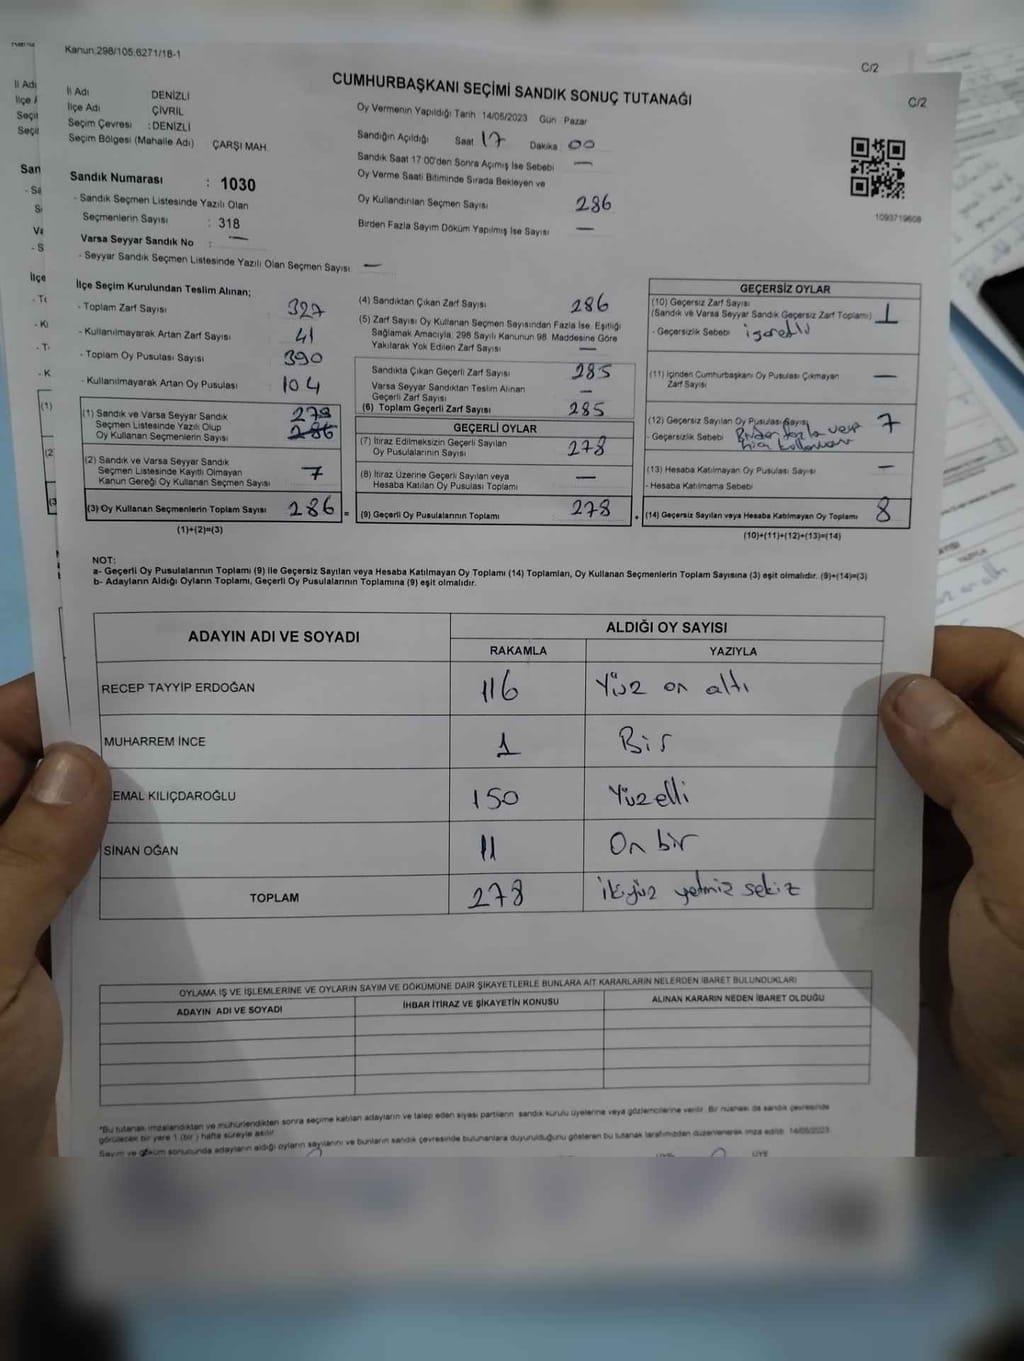 Kanun:298/105,6271/18-1
C/2
C/2
CUMHURBAŞKANI SEÇİMİ SANDIK SONUÇ TUTANAĞI
İl Adı DENİZLİ
İlçe Adı ÇİVRİL
Seçim Çevresi : DENİZLİ
Seçim Bölgesi (Mahalle Adı) ÇARŞI MAH.
Sandık Numarası : 1030
- Sandık Seçmen Listesinde Yazılı Olan
Seçmenlerin Sayısı : 318
Varsa Seyyar Sandık No : —
- Seyyar Sandık Seçmen Listesinde Yazılı Olan Seçmen Sayısı —
Oy Vermenin Yapıldığı Tarih 14/05/2023 Gün Pazar
Sandığın Açıldığı Saat 17 Dakika 00
Sandık Saat 17:00'den Sonra Açımış İse Sebebi —
Oy Verme Saati Bitiminde Sırada Bekleyen ve
Oy Kullandırılan Seçmen Sayısı 286
Birden Fazla Sayım Döküm Yapılmış İse Sayısı —
1093719608
İlçe Seçim Kurulundan Teslim Alınan;
- Toplam Zarf Sayısı 327
- Kullanılmayarak Artan Zarf Sayısı 41
- Toplam Oy Pusulası Sayısı 390
- Kullanılmayarak Artan Oy Pusulası 104
(1) Sandık ve Varsa Seyyar Sandık 279
Seçmen Listesinde Yazılı Olup
Oy Kullanan Seçmenlerin Sayısı 286
(2) Sandık ve Varsa Seyyar Sandık
Seçmen Listesinde Kayıtlı Olmayan
Kanun Gereği Oy Kullanan Seçmen Sayısı 7
(3) Oy Kullanan Seçmenlerin Toplam Sayısı 286
(1)+(2)=(3)
(4) Sandıktan Çıkan Zarf Sayısı 286
(5) Zarf Sayısı Oy Kullanan Seçmen Sayısından Fazla İse, Eşitliği
Sağlamak Amacıyla, 298 Sayılı Kanunun 98. Maddesine Göre
Yakılarak Yok Edilen Zarf Sayısı —
Sandıkta Çıkan Geçerli Zarf Sayısı 285
Varsa Seyyar Sandıktan Teslim Alınan
Geçerli Zarf Sayısı —
(6) Toplam Geçerli Zarf Sayısı 285
GEÇERLİ OYLAR
(7) İtiraz Edilmeksizin Geçerli Sayılan
Oy Pusulalarının Sayısı 278
(8) İtiraz Üzerine Geçerli Sayılan veya
Hesaba Katılan Oy Pusulası Toplamı —
(9) Geçerli Oy Pusulalarının Toplamı 278
GEÇERSİZ OYLAR
(10) Geçersiz Zarf Sayısı
(Sandık ve Varsa Seyyar Sandık Geçersiz Zarf Toplamı) 1
- Geçersizlik Sebebi işaretli
(11) İçinden Cumhurbaşkanı Oy Pusulası Çıkmayan
Zarf Sayısı —
(12) Geçersiz Sayılan Oy Pusulası Sayısı 7
- Geçersizlik Sebebi Birden fazla veya
hiç
(13) Hesaba Katılmayan Oy Pusulası Sayısı —
- Hesaba Katılmama Sebebi
(14) Geçersiz Sayılan veya Hesaba Katılmayan Oy Toplamı 8
(10)+(11)+(12)+(13)=(14)
NOT:
a- Geçerli Oy Pusulalarının Toplamı (9) İle Geçersiz Sayılan veya Hesaba Katılmayan Oy Toplamı (14) Toplamları, Oy Kullanan Seçmenlerin Toplam Sayısına (3) eşit olmalıdır. (9)+(14)=(3)
b- Adayların Aldığı Oyların Toplamı, Geçerli Oy Pusulalarının Toplamına (9) eşit olmalıdır.
ADAYIN ADI VE SOYADI
ALDIĞI OY SAYISI
RAKAMLA YAZIYLA
RECEP TAYYİP ERDOĞAN 116 Yüz on altı
MUHARREM İNCE 1 Bir
EMAL KILIÇDAROĞLU 150 Yüzelli
SİNAN OĞAN 11 On bir
TOPLAM 278 ikiyüz yetmiş sekiz
OYLAMA İŞ VE İŞLEMLERİNE VE OYLARIN SAYIM VE DÖKÜMÜNE DAİR ŞİKAYETLERLE BUNLARA AİT KARARLARIN NELERDEN İBARET BULUNDUKLARI
ADAYIN ADI VE SOYADI
İHBAR İTİRAZ VE ŞİKAYETİN KONUSU
ALINAN KARARIN NEDEN İBARET OLDUĞU
*Bu tutanak imzalandıktan ve mühürlendikten sonra seçime katılan adayların ve talep eden siyasi partilerin sandık kurulu üyelerine veya gözlemcilerine verilir. Bir nüshası da sandık çevresinde
görülecek bir yere 1 (bir) hafta süreyle asılır.
Sayım ve döküm sonucunda adayların aldığı oyların sayılarını ve bunların sandık çevresinde bulunanlara duyurulduğunu gösteren bu tutanak tarafımızdan düzenlenerek imza edildi. 14/05/2023
ÜYE